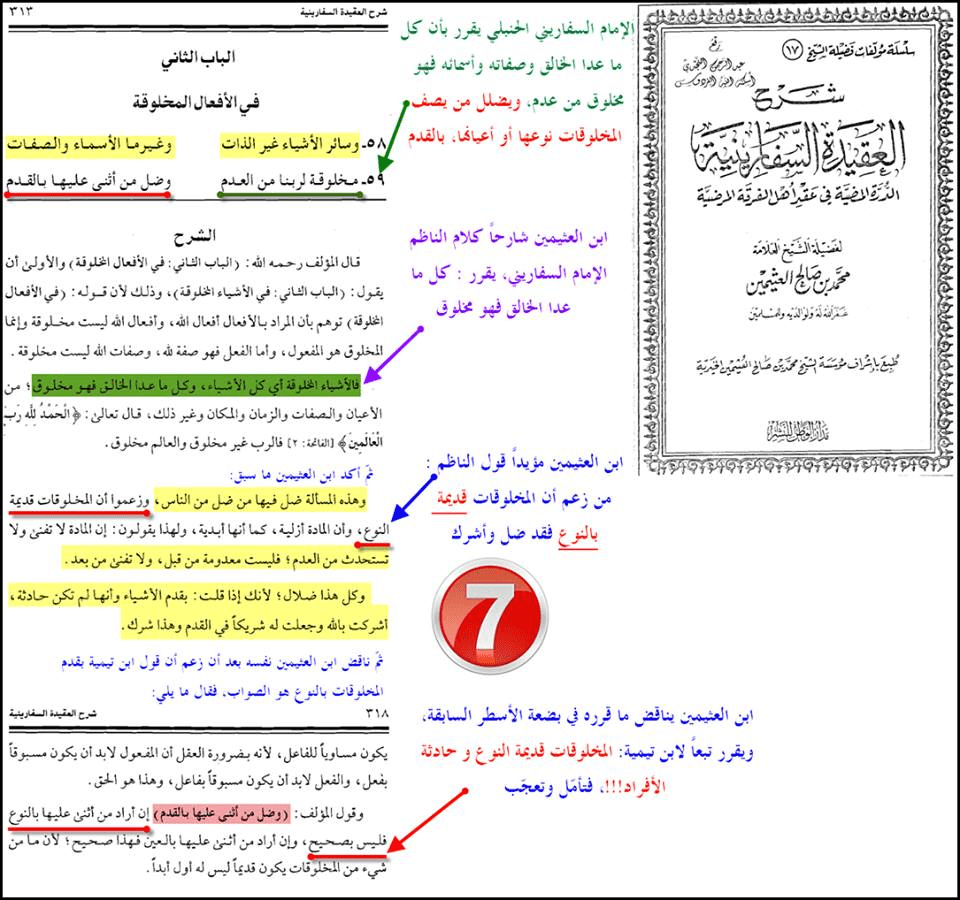 سلسلة مؤلفات فضيلة الشيخ (١٧)
شرح
العقيدة السفارينية
الدرة المضية في عقد أهل الفرقة المرضية
لفضيلة الشيخ العلامة
محمد بن صالح العثيمين
غفر الله له ولوالديه وللمسلمين
طبع بإشراف مؤسسة الشيخ محمد بن صالح العثيمين الخيرية
مدار الوطن للنشر
الإمام السفاريني الحنبلي يقرر بأن كل
ما عدا الخالق وصفاته وأسمائه فهو
مخلوق من عدم، ويضلل من يصف
المخلوقات نوعها أو أعيانها، بالقدم
شرح العقيدة السفارينية
٣١٣
الباب الثاني
في الأفعال المخلوقة
٥٨ـ وسائر الأشياء غير الذات وغيرما الأسماء والصفات
٥٩ـ مخلوقة لربنا من العدم وضل من أثنى عليها بالقدم
الشرح
قال المؤلف رحمه الله: (الباب الثاني: في الأفعال المخلوقة) والأولى أن
يقول: (الباب الثاني: في الأشياء المخلوقة)، وذلك لأن قوله: (في الأفعال
المخلوقة) توهم بأن المراد بالأفعال أفعال الله، وأفعال الله ليست مخلوقة وإنما
المخلوق هو المفعول، وأما الفعل فهو صفة لله، وصفات الله ليست مخلوقة.
فالأشياء المخلوقة أي كل الأشياء، وكل ما عدا الخالق فهو مخلوق؛ من
الأعيان والصفات والزمان والمكان وغير ذلك، قال تعالى: ﴿الْحَمْدُ لِلَّهِ رَبِّ
الْعَالَمِينَ﴾ [الفاتحة: ٢] فالرب غير مخلوق والعالم مخلوق.
ثمّ أكد ابن العثيمين ما سبق:
وهذه المسألة ضل فيها من ضل من الناس، وزعموا أن المخلوقات قديمة
النوع، وأن المادة أزلية، كما أنها أبدية، ولهذا يقولون: إن المادة لا تفنى ولا
تستحدث من العدم؛ فليست معدومة من قبل، ولا تفنى من بعد.
وكل هذا ضلال؛ لأنك إذا قلت: بقدم الأشياء وأنها لم تكن حادثة،
أشركت بالله وجعلت له شريكاً في القدم وهذا شرك.
ثمّ ناقض ابن العثيمين نفسه بعد أن زعم أن قول ابن تيمية بقدم
المخلوقات بالنوع هو الصواب، فقال ما يلي:
ابن العثيمين شارحاً كلام الناظم
الإمام السفاريني، يقرر : كل ما
عدا الخالق فهو مخلوق
ابن العثيمين مؤيداً قول الناظم :
من زعم أن المخلوقات قديمة
بالنوع فقد ضل وأشرك
7
٣١٨
شرح العقيدة السفارينية
يكون مساوياً للفاعل، لأنه بضرورة العقل أن المفعول لابد أن يكون مسبوقاً
بفعل، والفعل لابد أن يكون مسبوقاً بفاعل، وهذا هو الحق.
وقول المؤلف: (وضل من أثنى عليها بالقدم) إن أراد من أثنى عليها بالنوع
فليس بصحيح، وإن أراد من أثنى عليها بالعين فهذا صحيح؛ لأن ما من
شيء من المخلوقات يكون قديماً ليس له أول أبداً.
ابن العثيمين يناقض ما قرره في بضعة الأسطر السابقة،
ويقرر تبعاً لابن تيمية: المخلوقات قديمة النوع و حادثة
الأفراد!!!، فتأمّل وتعجّب